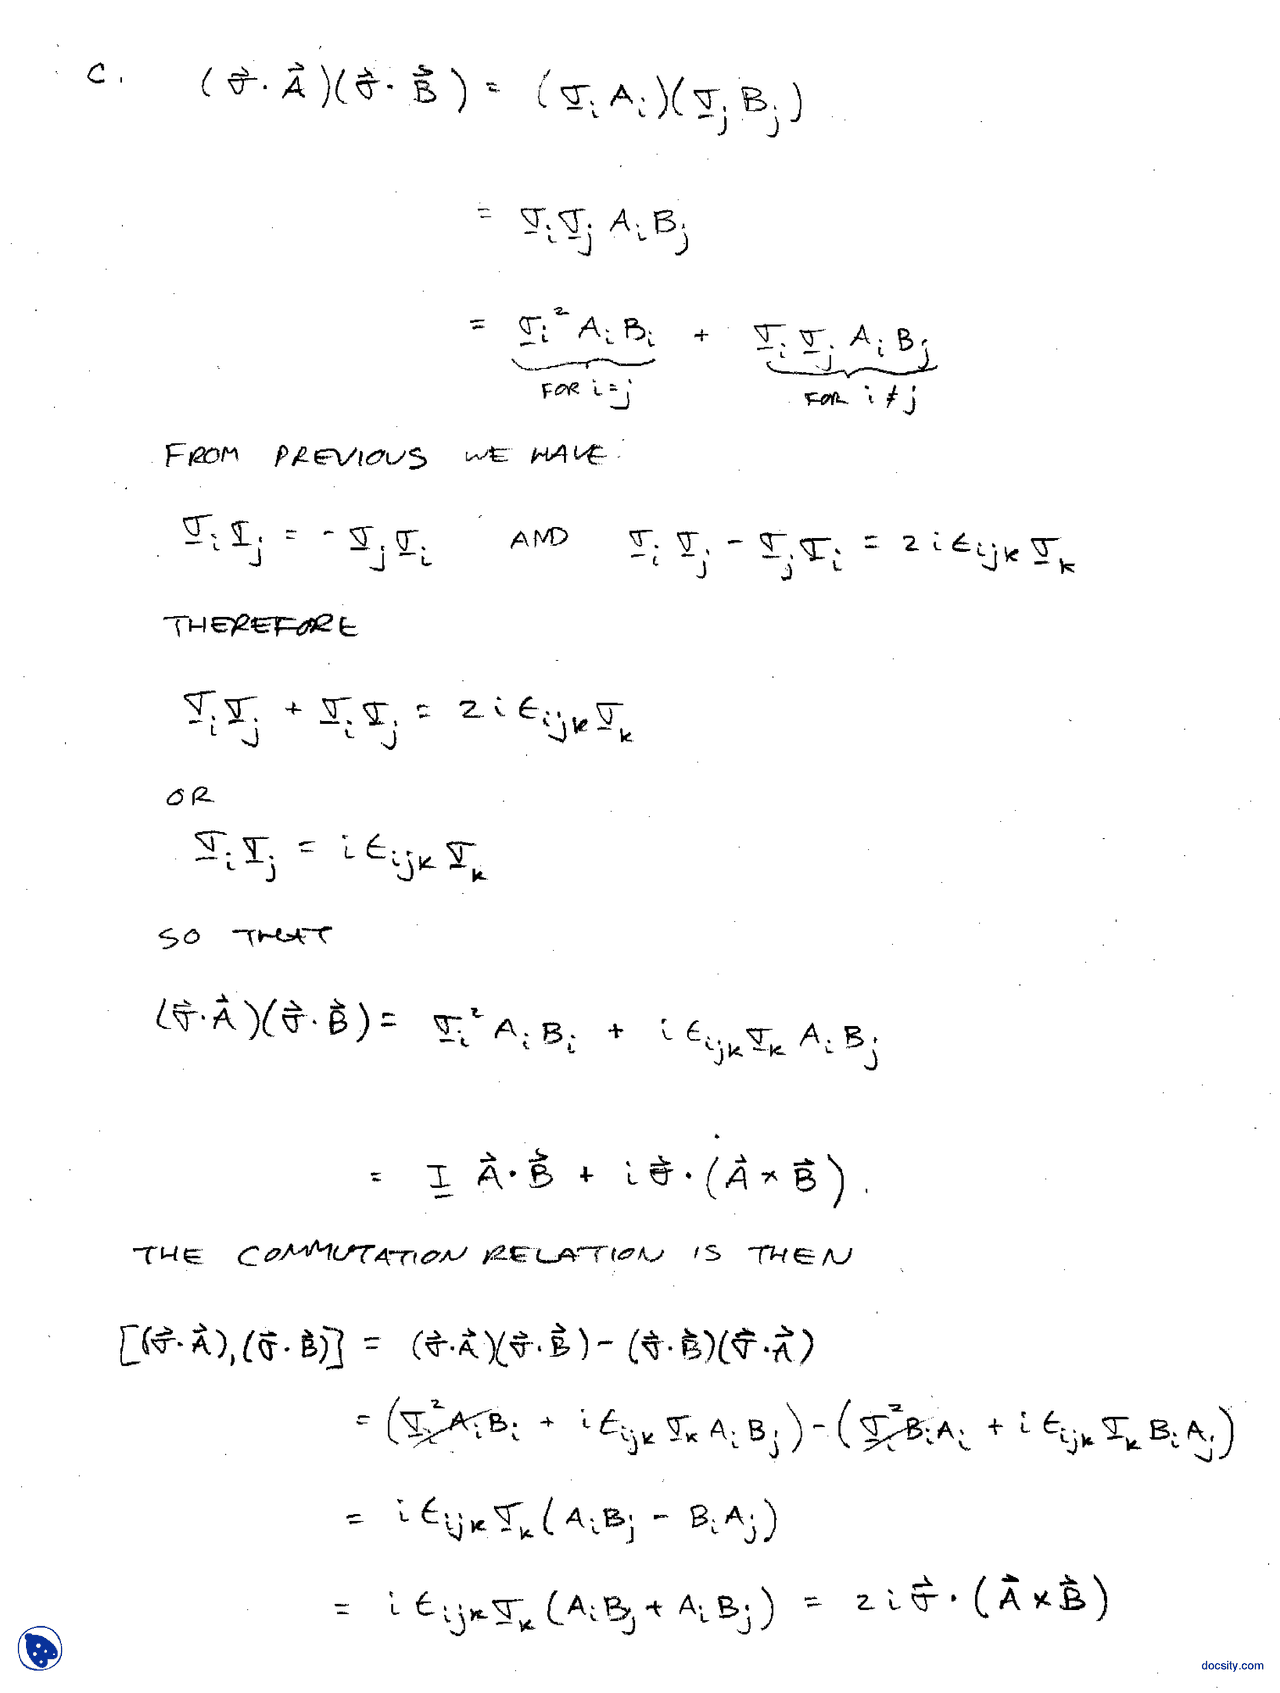 C. (σ⃗·A⃗)(σ⃗·B⃗) = (σ̲ᵢAᵢ)(σ̲ⱼBⱼ)
= σ̲ᵢσ̲ⱼ AᵢBⱼ
= σ̲ᵢ² AᵢBᵢ + σ̲ᵢσ̲ⱼ AᵢBⱼ
FOR i=j FOR i≠j
FROM PREVIOUS WE HAVE:
σ̲ᵢσ̲ⱼ = -σ̲ⱼσ̲ᵢ AND σ̲ᵢσ̲ⱼ - σ̲ⱼσ̲ᵢ = 2iϵᵢⱼₖσ̲ₖ
THEREFORE
σ̲ᵢσ̲ⱼ + σ̲ᵢσ̲ⱼ = 2iϵᵢⱼₖσ̲ₖ
OR
σ̲ᵢσ̲ⱼ = iϵᵢⱼₖσ̲ₖ
SO THAT
(σ⃗·A⃗)(σ⃗·B⃗) = σ̲ᵢ² AᵢBᵢ + iϵᵢⱼₖσ̲ₖ AᵢBⱼ
= I̲ A⃗·B⃗ + iσ⃗·(A⃗×B⃗).
THE COMMUTATION RELATION IS THEN
[(σ⃗·A⃗),(σ⃗·B⃗)] = (σ⃗·A⃗)(σ⃗·B⃗) - (σ⃗·B⃗)(σ⃗·A⃗)
= (σ̲ᵢ²AᵢBᵢ + iϵᵢⱼₖσ̲ₖAᵢBⱼ) - (σ̲ᵢ²BᵢAᵢ + iϵᵢⱼₖσ̲ₖBᵢAⱼ)
= iϵᵢⱼₖσ̲ₖ(AᵢBⱼ - BᵢAⱼ)
= iϵᵢⱼₖσ̲ₖ(AᵢBⱼ + AᵢBⱼ) = 2iσ⃗·(A⃗×B⃗)
docsity.com